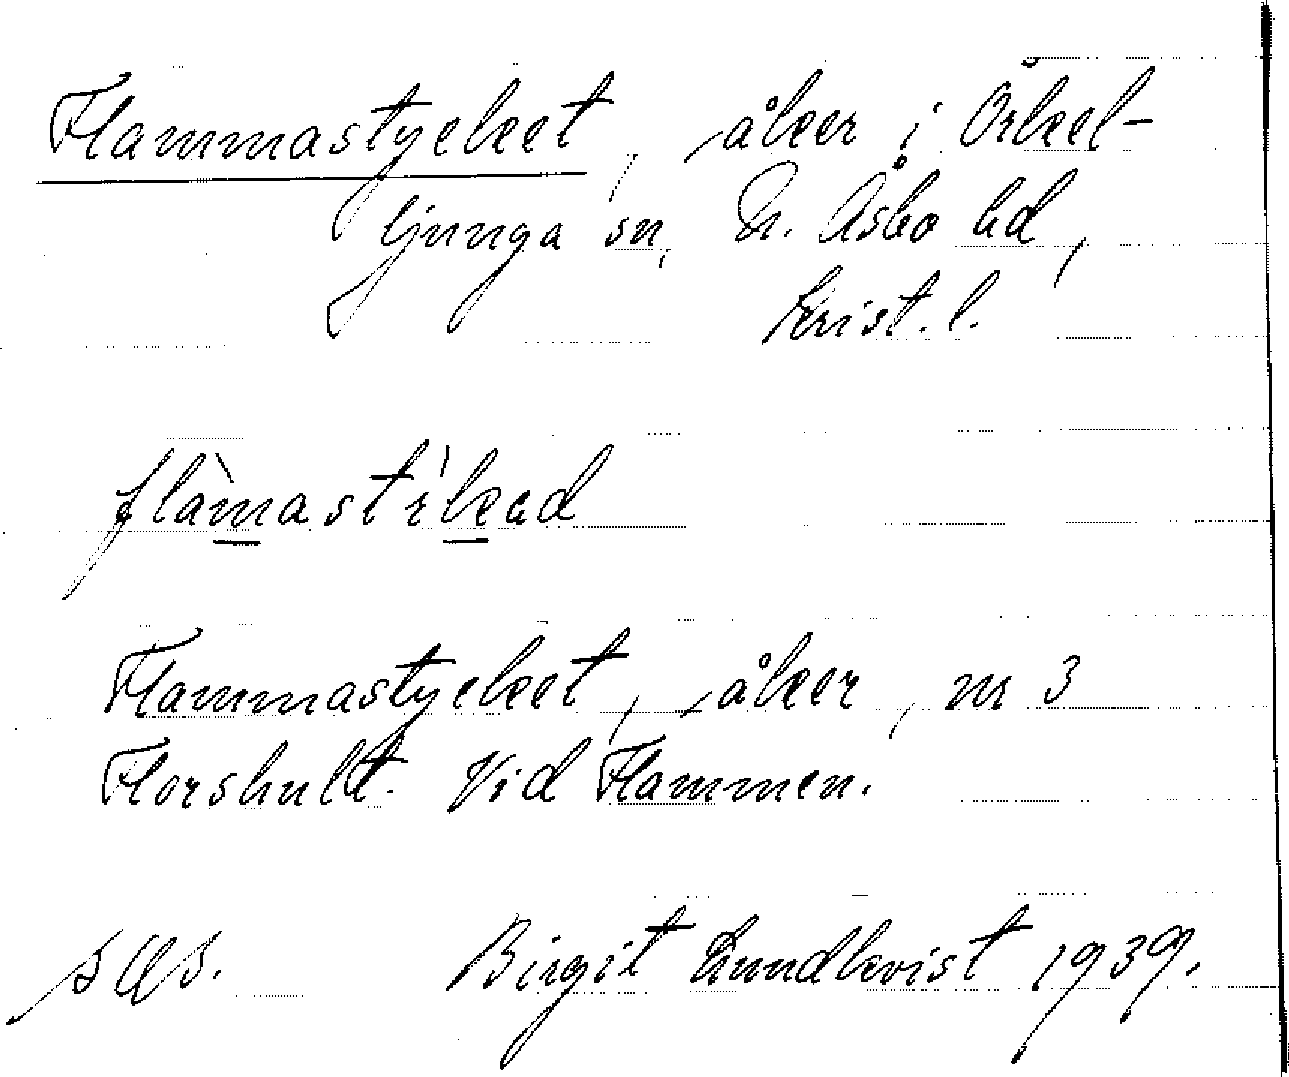 Flammastycket, åker i Örkel-
ljunga sn, N. Åsbo hd,
Krist. l.
flàmastíkad
Flammastycket, åker, nr 3
Florshult. Vid Flammen.
Birgit Lundkvist 1939.